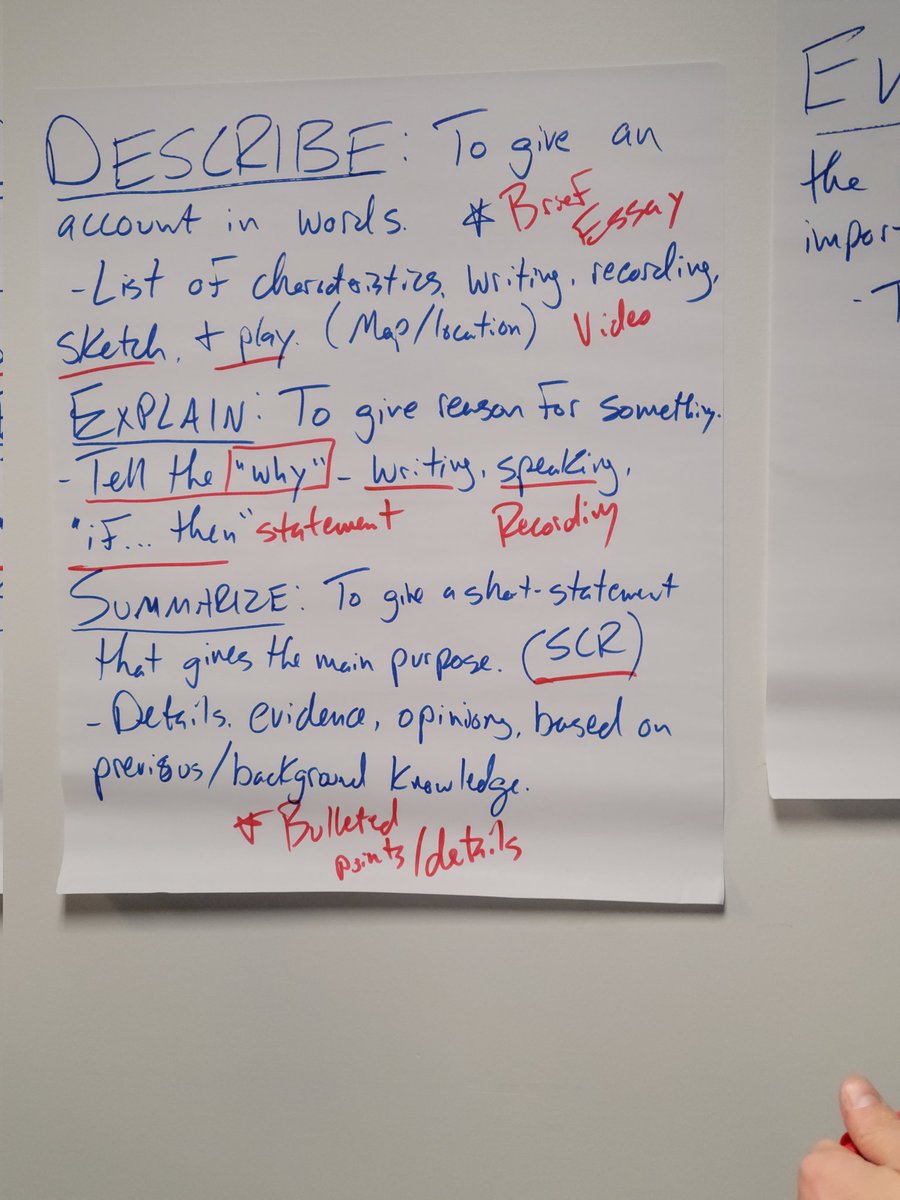 DESCRIBE: To give an
account in words. * Brief Essay
- List of characteristics, writing, recording,
sketch, + play. (Map/location) Video
EXPLAIN: To give reason for something.
- Tell the "why" - writing, speaking,
"if... then" statement Recording
SUMMARIZE: To give a short-statement
that gives the main purpose. (SCR)
- Details, evidence, opinions, based on
previous/background knowledge.
* Bulleted
points/details
Ev
the
impor
- T